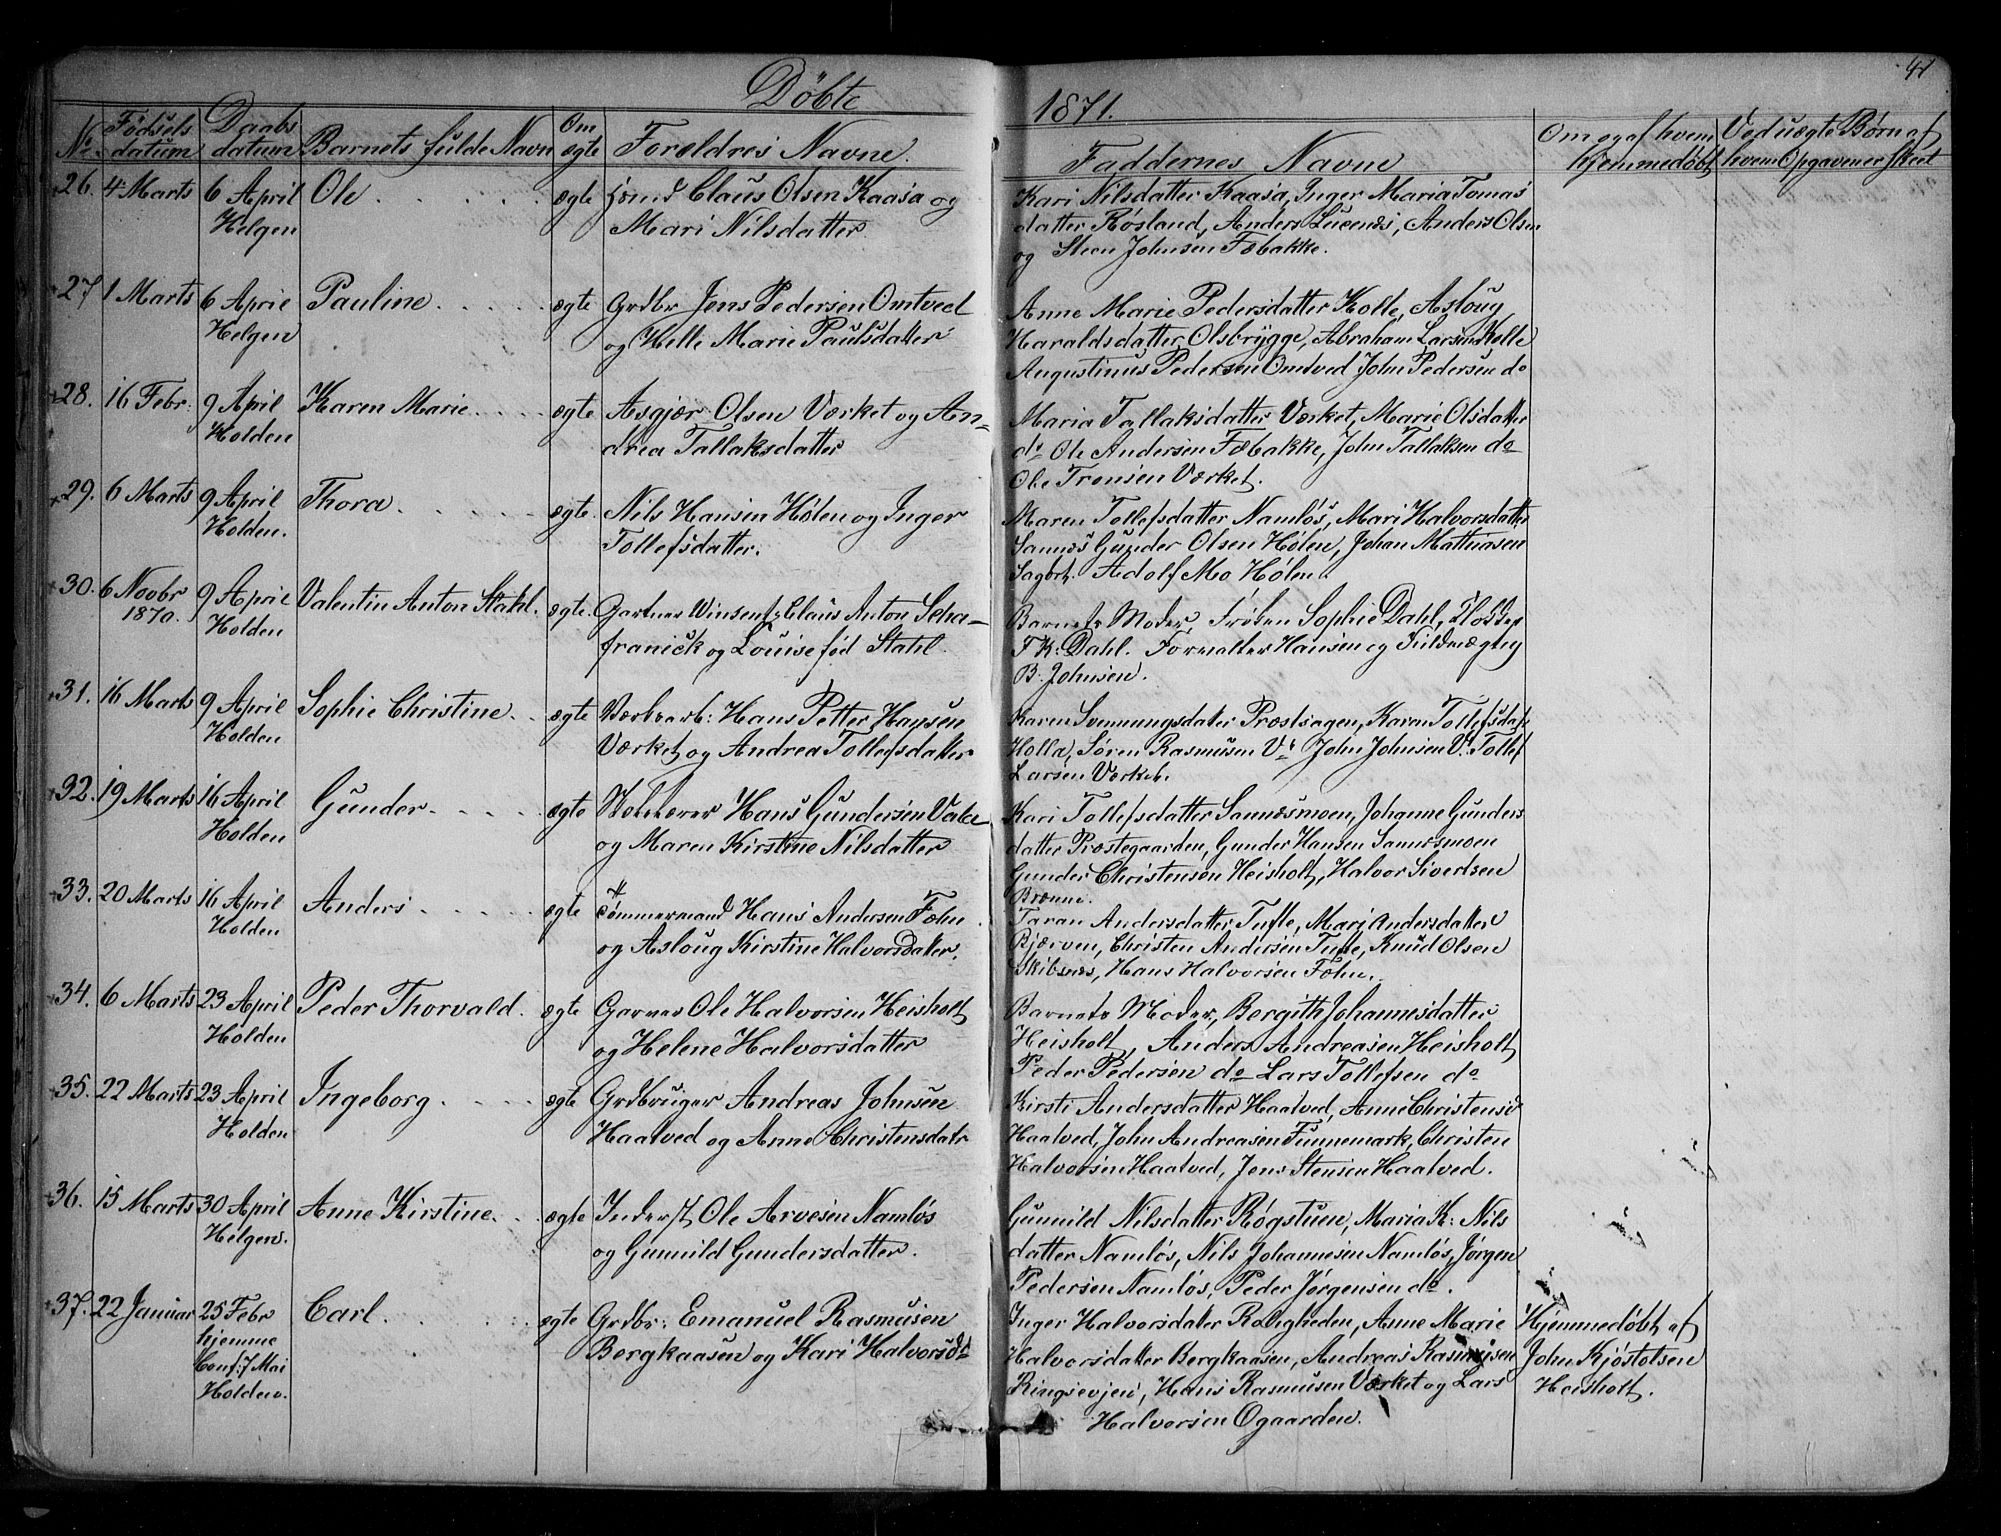 Döbte
1871.
41
No. Fødsels datum Daabs datum Barnets fulde Navn Om ægte Forældres Navne. Faddernes Navne Om og af hvem hjemmedøbt Ved uægte Børn af hvem Opgaven er skeet
26. 4 Marts 6 April Ole ægte Claus Olsen Kaasa og Kari Nilsdatter Kaasa, Inger Maria Tomas
Helgen Mari Nilsdatter datter Røsland, Anders Anders Olsen
og Steen Johnsen Fæbakke.
27 1 Marts 6 April Pauline ægte Grdbr Jens Pedersen Omtved Anne Marie Pedersdatter Holte, Asloug
Helgen og Helle Marie Paulsdatter Haraldsdatter Olsbrygge, Abraham Larsen Holte
Augustinus Pedersen Omtved John Pedersen do
28. 16 Febr: 9 April Karen Marie ægte Asgjær Olsen Værket og An- Maria Tallaksdatter Værket, Marie Olsdatter
Holden drea Tallaksdatter do Ole Andersen Fæbakke, John Tallaksen do
Ole Tronsen Værket.
29. 6 Marts 9 April Thora ægte. Nils Hansen Hølen og Inger Maren Tollefsdatter Namløs, Mari Halvorsdatter
Holden. Tollefsdatter. Sannæs Gunder Olsen Hølen, Johan Mathiasen
Sagbrt. Adolf Mo Hølen.
30. 6 Novbr 9 April Valentin Anton Stahl. ægte. Gartner Winsents Claus Anton Scha- Barnets Moder, Frøken Sophie Dahl,
1870. Holden franick og Louise fød Stahl. F K: Dahl. Forvalter Hansen og Fuldmægtig
B: Johnsen.
31. 16 Marts 9 April Sophie Christine ægte Værksarb: Hans Petter Hansen Karen Svenningsdater Præstvagen, Karen Tollefsdatr
Holden Værket og Andrea Tollefsdatter Holla, Søren Rasmusen Vk John Johnsen Vk Tollef
Larsen Værket.
32. 19 Marts 16 April Gunder ægte Hans Gundersen Vabe Kari Tollefsdatter Sannæsmoen, Johanne Gunders
Holden og Maren Kirstine Nilsdatter datter Præstegaarden, Gunder Hansen Sannæsmoen
Gunder Christensen Heisholt, Halvor Sivertsen
Brænne.
33. 20 Marts 16 April Anders ægte Tømmermand Hans Andersen Fæhn Taran Andersdatter Tufte, Mari Andersdatter
Holden og Asloug Kirstine Halvorsdatter. Bjærven, Christen Andersen Tufte, Knud Olsen
Skibsnæs, Hans Halvorsen Fæhn.
34. 6 Marts 23 April Peder Thorvald ægte Garver Ole Halvorsen Heisholt Barnets Moder, Bergith Johannesdatter
Holden og Helene Halvorsdatter Heisholt, Anders Andreasen Heisholt
Peder Pedersen do Lars Tollefsen do
35. 22 Marts 23 April Ingeborg ægte Grdbruger Andreas Johnsen Kirsti Andersdatter Haatved, Anne Christensdr
Holden Haatved og Anne Christensdatr Haatved, John Andreasen Finnemark, Christen
Halvorsen Haatved, Jens Stensen Haatved.
36. 15 Marts 30 April Anne Kirstine ægte Inderst Ole Arvesen Namløs Gunnild Nilsdatter Røgstuen, Maria K: Nils
Helgen. og Gunnild Gundersdatter. datter Namløs, Nils Johannesen Namløs, Jørgen
Pedersen Namløs, Peder Jørgensen do.
37. 22 Januar 25 Febr Carl ægte Grdbr: Emanuel Rasmusen Inger Halvorsdater Roligheden, Anne Marie Hjemmedøbt af
hjemme Bergkaasen og Kari Halvorsdr Halvorsdatter Bergkaasen, Andreas Rasmusen John Kjøstolsen
Conf: 7 Mai Ringsevjen, Hans Rasmusen Værket og Lars Heisholt.
Holden. Halvorsen Ogaarden.